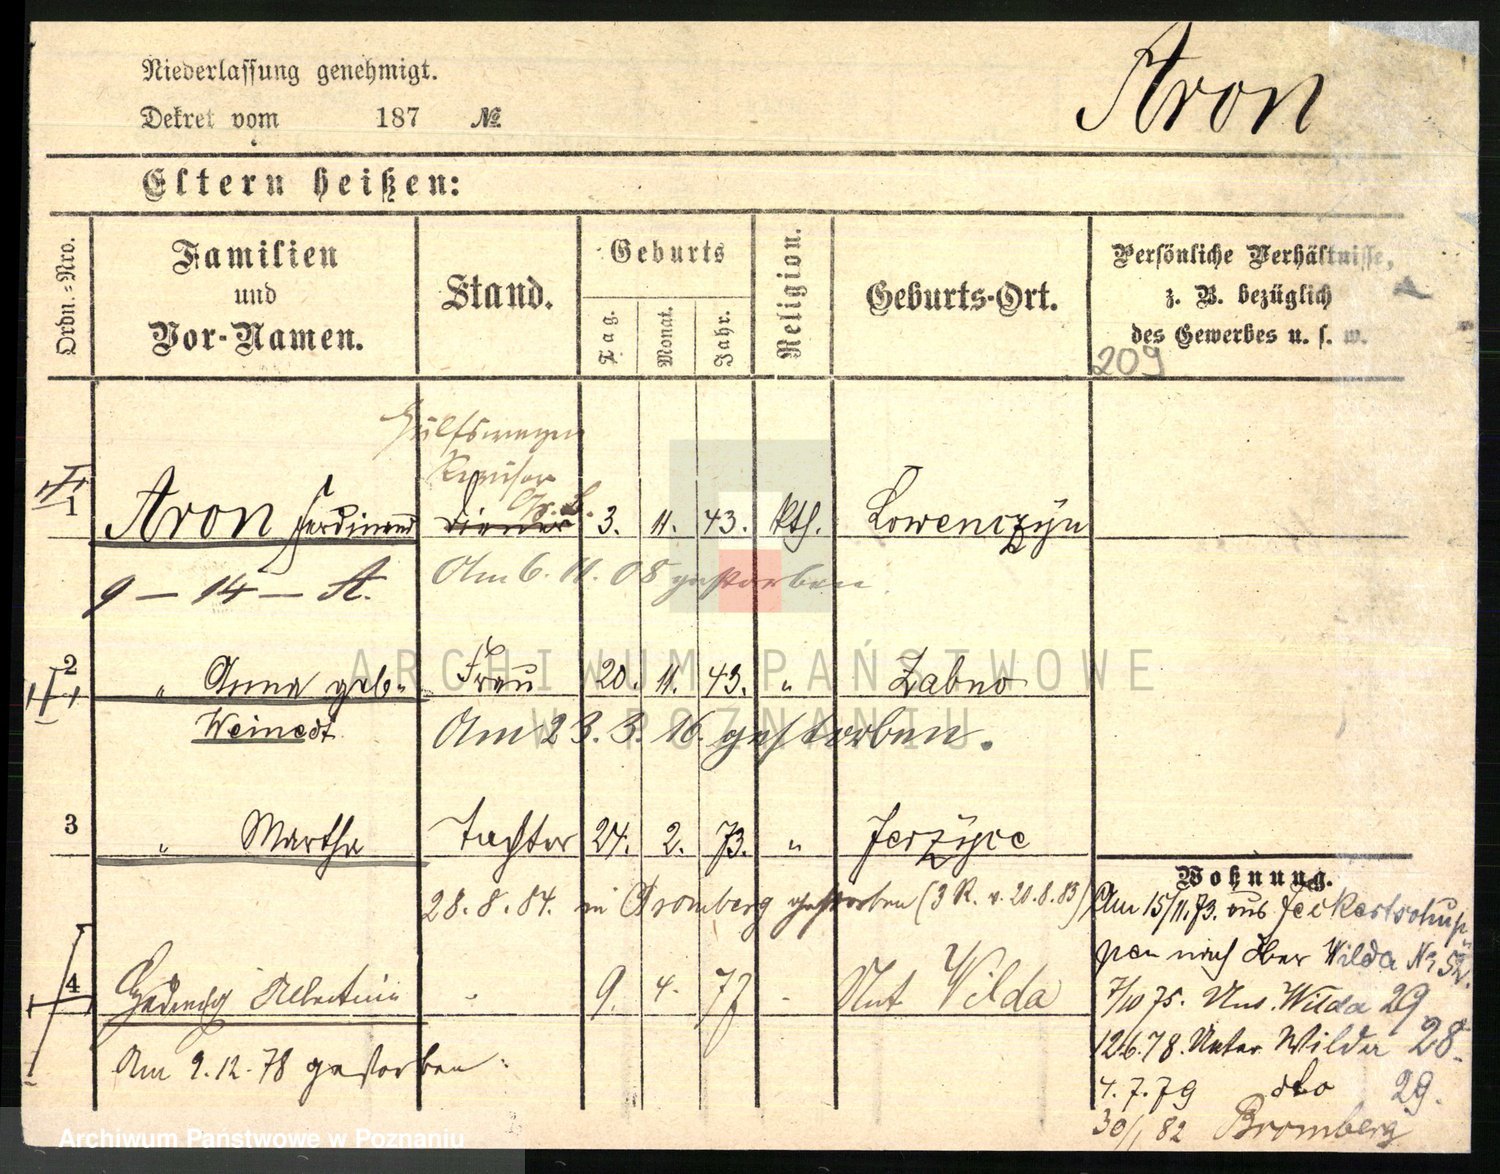 Aron
Niederlassung genehmigt.
Dekret vom 187 №
Eltern heißen:
Ordn.-Nro.
Familien und Vor-Namen.
Stand.
Geburts
Tag.
Monat.
Jahr.
Religion.
Geburts-Ort.
Persönliche Verhältnisse,
z. B. bezüglich
des Gewerbes u. s. w.
209
Hülfswagen
Revisor
1 Aron Ferdinand Diener 3. 11. 43. kth. Lowenczyn
9 — 14 — A.
Am 6. 11. 08 gestorben
2 " Anna geb. Frau 20. 11. 43. " Zabno
Weinedt
Am 23. 3. 16. gestorben.
3 " Martha Tochter 24. 2. 73. " Jerzyce
28. 8. 84. in Bromberg gestorben (3 R. v. 20.8.83)
4 Hedwig Albertine " 9. 4. 77 - Unt Wilda
Am 9. 12. 78 gestorben
Wohnung.
Am 15/11.73. aus
pen nach Ober Wilda Nr 52.
7/10 75. Unt. Wilda 29
12.6.78. Unter Wilda 28.
4. 7. 79 dto 29.
30/1 82 Bromberg
ARCHIWUM PAŃSTWOWE
W POZNANIU
Archiwum Państwowe w Poznaniu